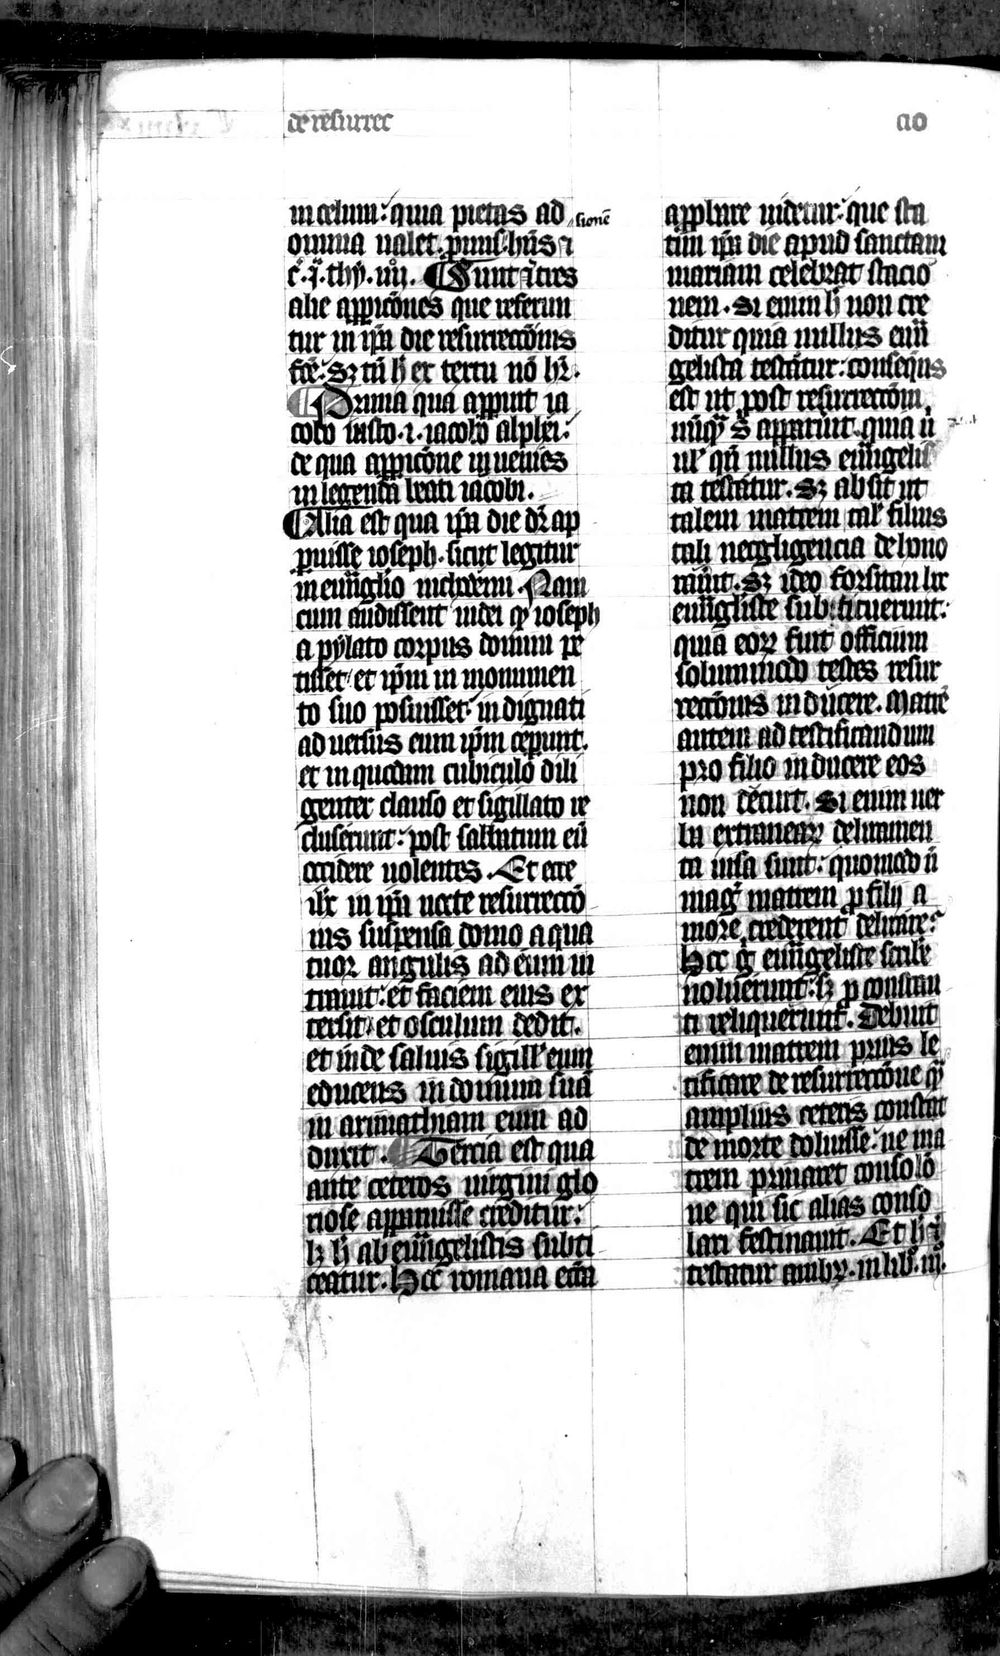 de resurrec
cio
in celum: quia pietas ad
omnia ualet. p̄mis̄. hn̄s ı
sionē
c̄. q̄. thỹ. iiij. Sunt ⁊ tres
alie appicōnes que referun
tur in ip̄a die resurreccōnis
fc̄e: Sꝫ tn̄ hͥ ex textu nō hr̄.
Prima qua apparuit ia
cobo iusto .i. iacobo alphei:
de qua appicōne inuenies
in legenda beati iacobi.
Alia est qua ip̄a die dr̄ ap
paruisse ioseph. sicut legitur
in euāglio nichodemi. Nam
cum audissent iudei ꝙ ioseph
a pylato corpus domini pe
tisset et ip̄m in monumen
to suo posuisset. indignati
aduersus eum ip̄m ceperunt.
et in quodam cubiculo dili
genter clauso et sigillato re
cluserunt: post sabbatum eū
occidere uolentes. Et ecce
ih̄c in ip̄a nocte resurreccō
nis suspensa domo a qua
tuor angulis ad eum in
trauit: et faciem eius ex
tersit et osculum dedit.
et inde saluis sigill' eum
educens in domum suā
in arimathiam eum ad
duxit. Tercia est qua
ante ceteros uirgini glo
riose apparuisse creditur:
lꝫ hͥ ab euāgelistis subti
ceatur. Hoc romana ecc̄a
approbare uidetur: que sta
tim ip̄a die apud sanctam
mariam celebrat stacio
nem. Si enim hͥ non cre
ditur quia nullus euā
gelista testatur: conseqn̄s
est ut post resurreccōm
nūqͣ ei apparuit. quia ū
ul' qn̄ nullus euāgelis
ta testatur. Sꝫ absit ut
talem matrem tal' filius
tali negligencia dehono
rauit. Sꝫ ideo forsitan hic
euāgliste subticuerunt:
quia eoꝝ fuit officium
solummodo testes resur
reccōnis inducere. Matrē
autem ad testificandum
pro filio inducere eos
non decuit. Si enim uer
ba extranearꝫ deliramen
ta uisa sunt: quomodo ū
mag̓ matrem p filij a
more crederent delirare?
Hoc g̊ euāgeliste scribe
noluerunt: sꝫ p constan
ti reliquerunt. Debuit
enim matrem prius le
tificare de resurreccōne qͣ
amplius ceteris constat
de morte doluisse: ne ma
trem priuaret consolō
ne qui sic alias conso
lari festinauit. Et hͥ ꝫ
testatur ambꝝ. in libͦ. iijͦ.